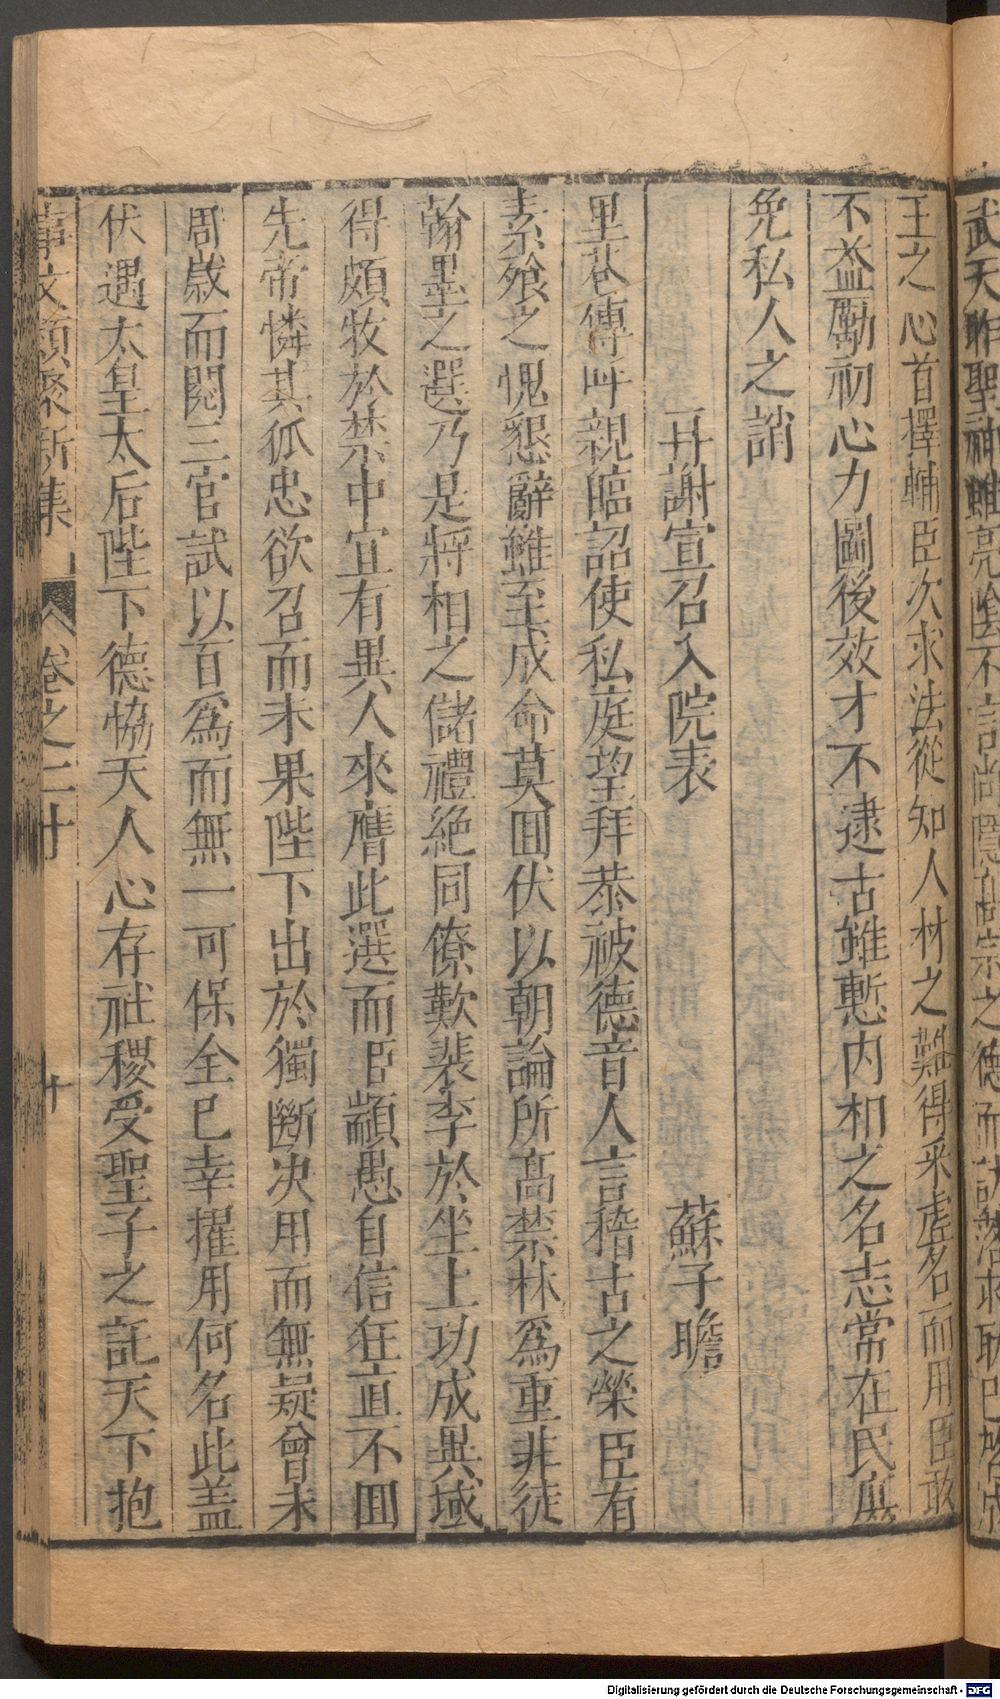 武天胙聖神雖亮陰不言尚隱高宗之德而訪落求助已於成
王之心首擇輔臣次求法從知人材之難得采虛名而用臣敢
不益勵初心力圖後效才不逮古雖慙內相之名志常在民庶
免私人之誚
再謝宣召入院表　蘇子瞻
里巷傳呼親臨詔使私庭望拜恭被德音人言稽古之榮臣有
素飱之愧懇辭雖至成命莫回伏以朝論所高禁林爲重非徒
翰墨之選乃是將相之儲禮絶同僚歎裴李於坐上功成異域
得頗牧於禁中宜有異人來膺此選而臣顓愚自信狂直不回
先帝憐其孤忠欲召而未果陛下出於獨斷決用而無疑曾未
周歲而閱三官試以百爲而無一可保全已幸擢用何名此盖
伏遇太皇太后陛下德恊天人心存社稷受聖子之託天下抱
事文類聚新集　卷之二十　十
Digitalisierung gefördert durch die Deutsche Forschungsgemeinschaft - DFG